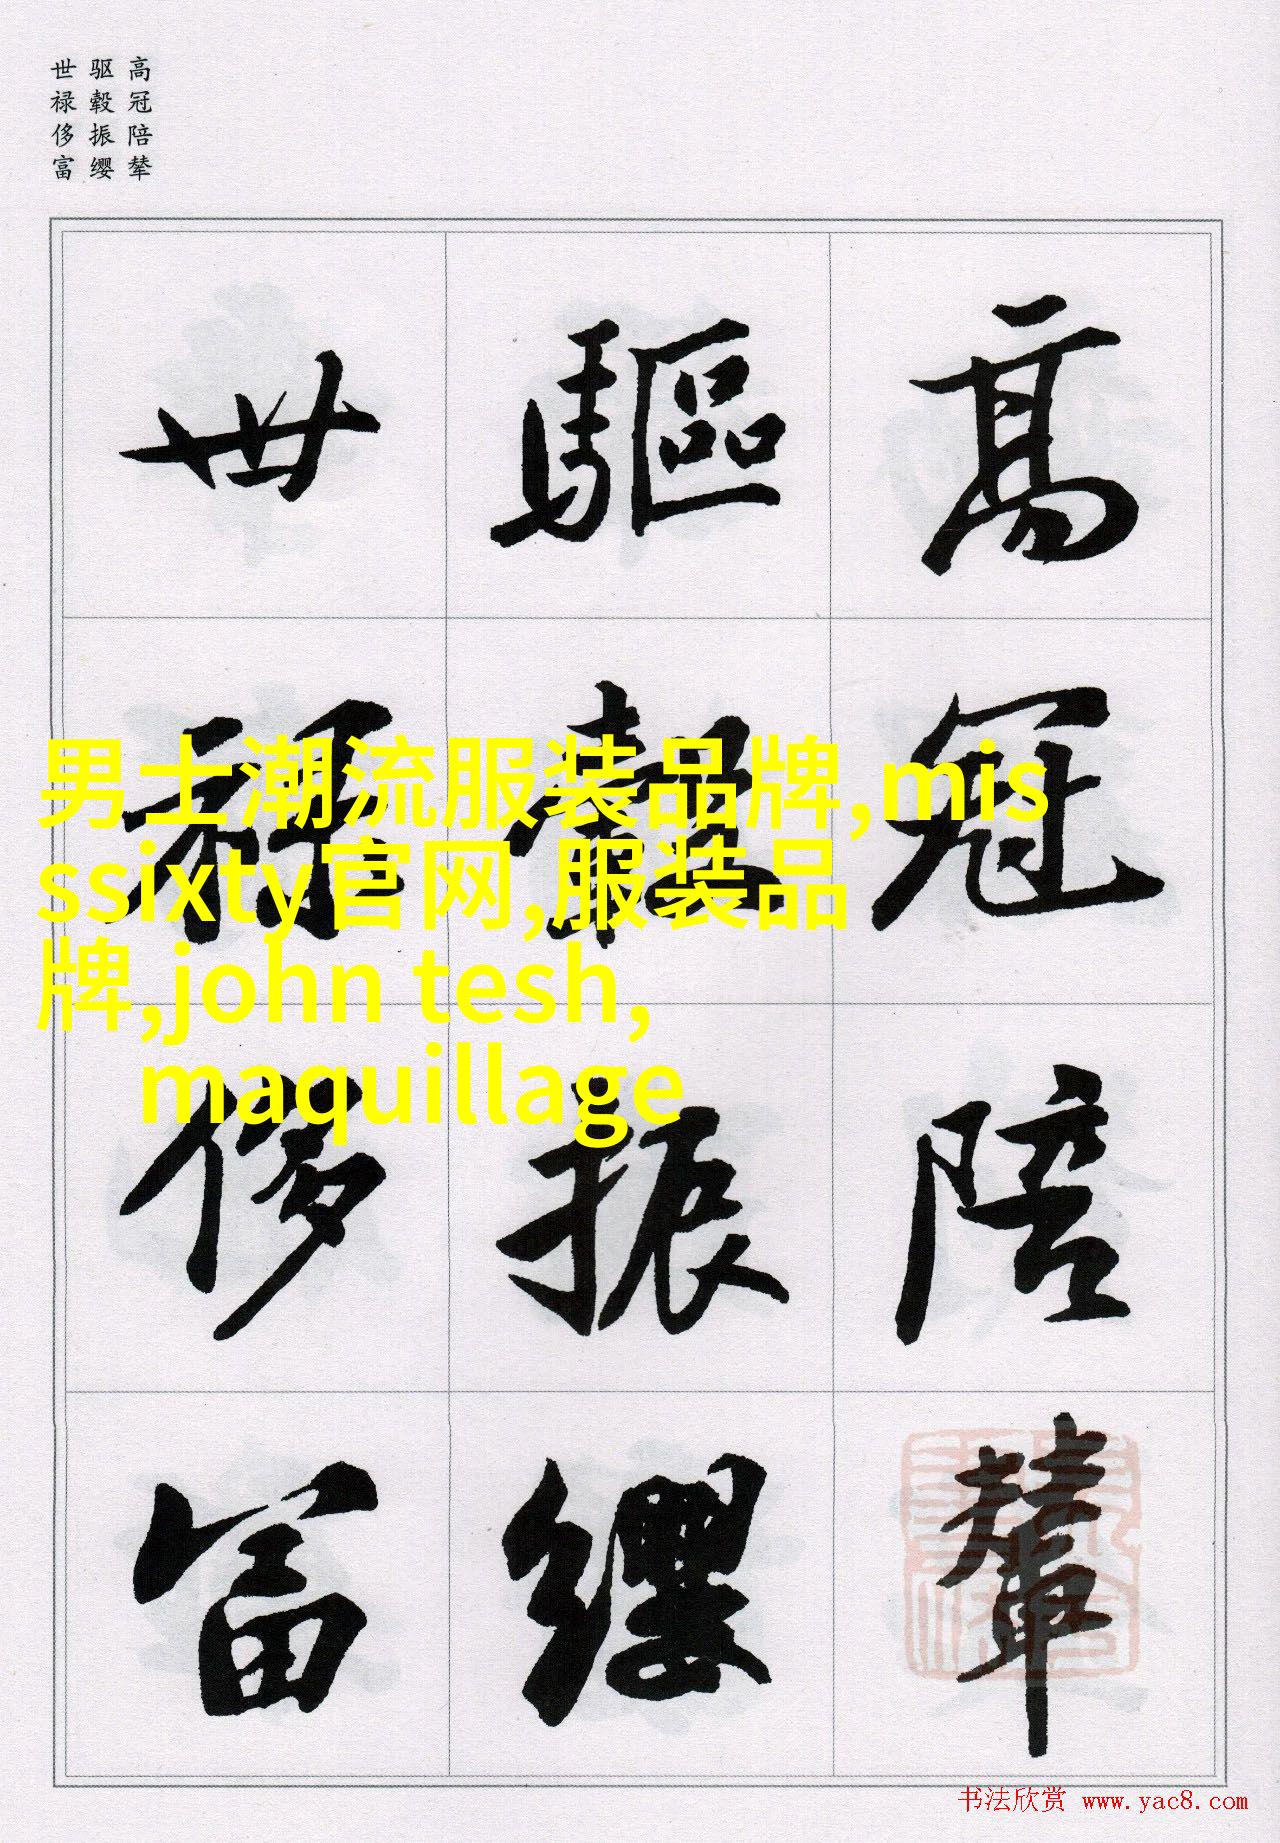 高冠陪辇
驱毂振缨
世禄侈富
高冠陪輦
驅轂振纓
世祿侈富
男士潮流服装品牌,mis
ssixty官网,服装品
牌,john tesh,
maquillage
书法欣赏 www.yac8.com